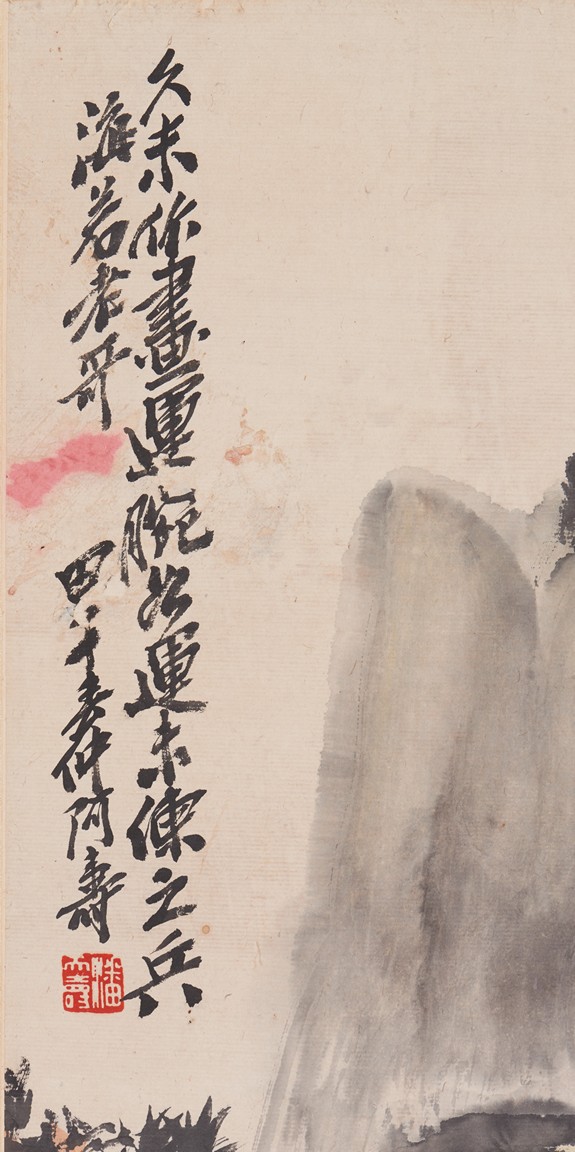 久未作畫運腕如運未練之兵
若老哥
四 春仲阿壽
潘天壽